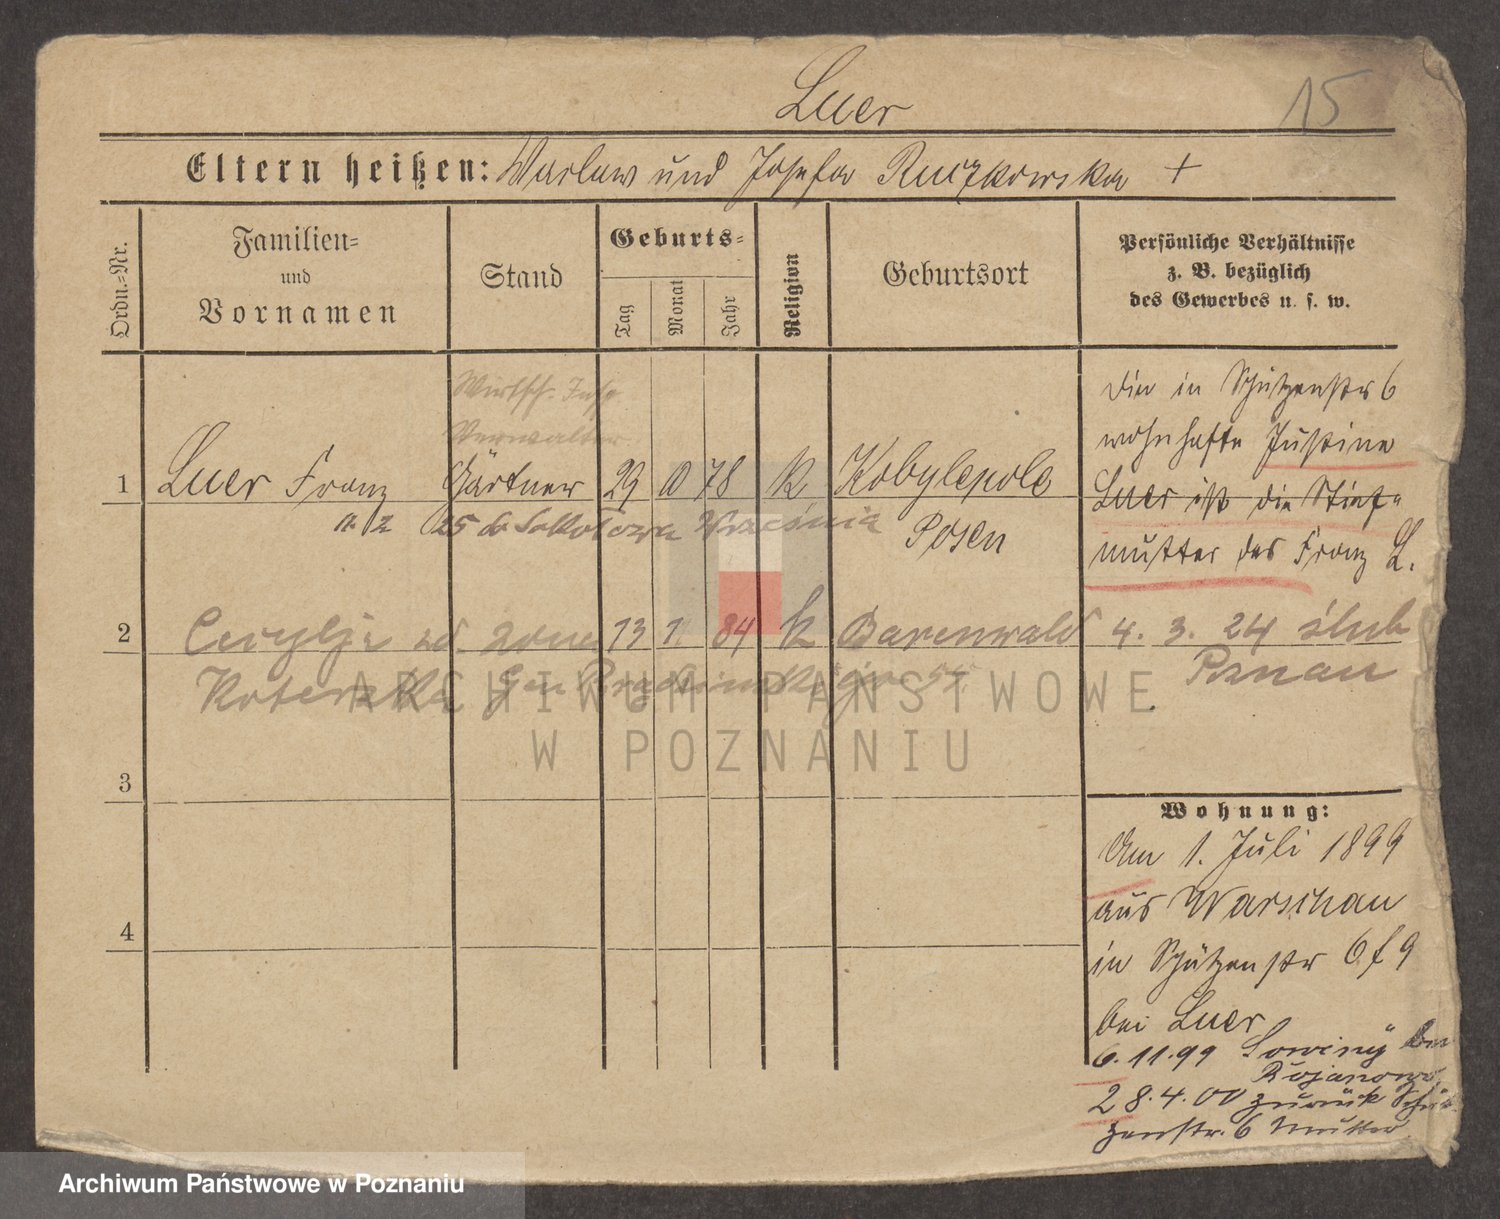 Luer
15
Eltern heißen: Warlaw und Josefa Ruczkowska +
Ordn.=Nr.
Familien=
und
Vornamen
Stand
Geburts=
Tag
Monat
Jahr
Religion
Geburtsort
Persönliche Verhältnisse
z. B. bezüglich
des Gewerbes u. s. w.
Wirtsch. Insp
Verwalter
1 Luer Franz Gärtner 29 10 78 K Kobylepole
Posen
25 do Sokołowa Września
die in Schützenstr 6
wohnhafte Justine
Luer ist die Stief=
mutter des Franz L.
2 84 K Barenwald 4. 3. 24 ślub
Poznań
Koterska
3
4
Wohnung:
Am 1. Juli 1899
aus Warschau
in Schützenstr 6 f 9
bei Luer
6.11.99 Lowciny bei
Bojanowo
28.4.00 zurück Schüt
zenstr. 6 Mutter
ARCHIWUM PAŃSTWOWE
W POZNANIU
Archiwum Państwowe w Poznaniu